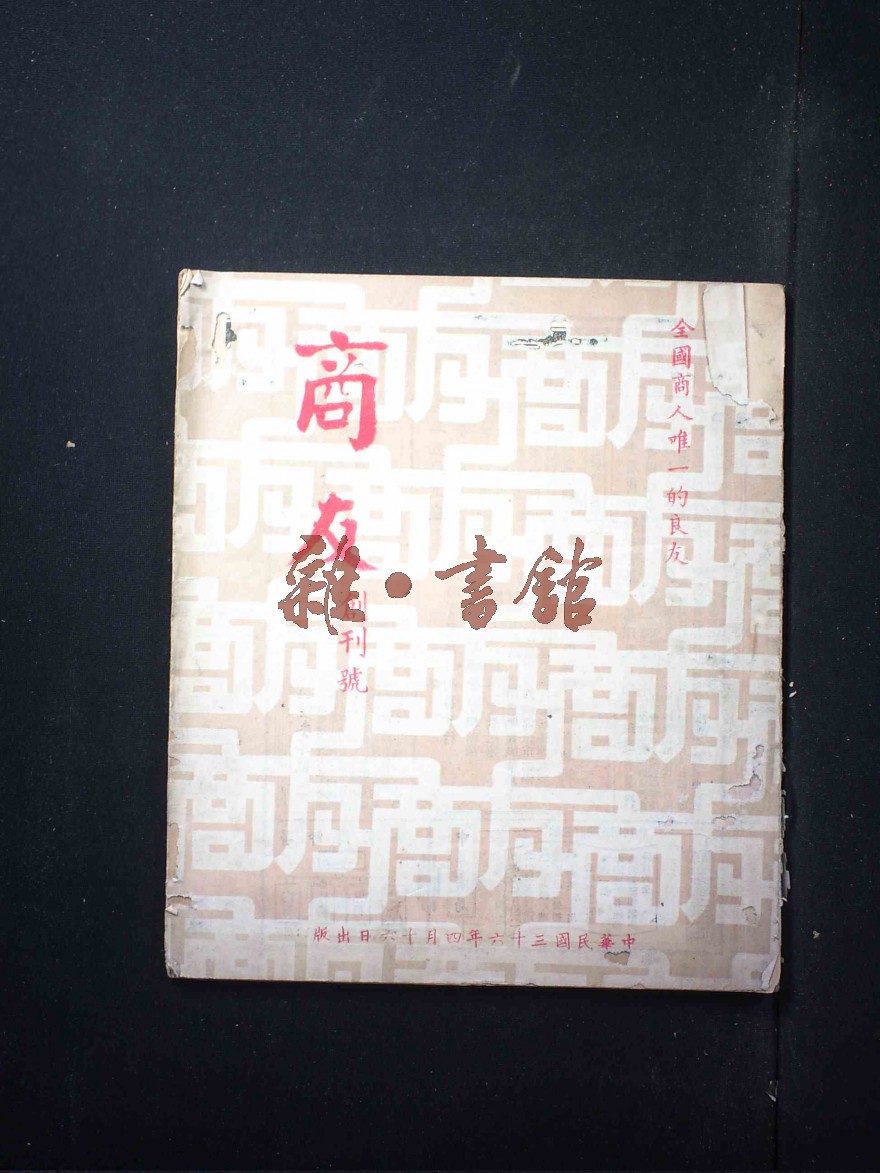 全國商人唯一的良友
商友
創刊號
雜·書館
中華民國三十六年四月十六日出版